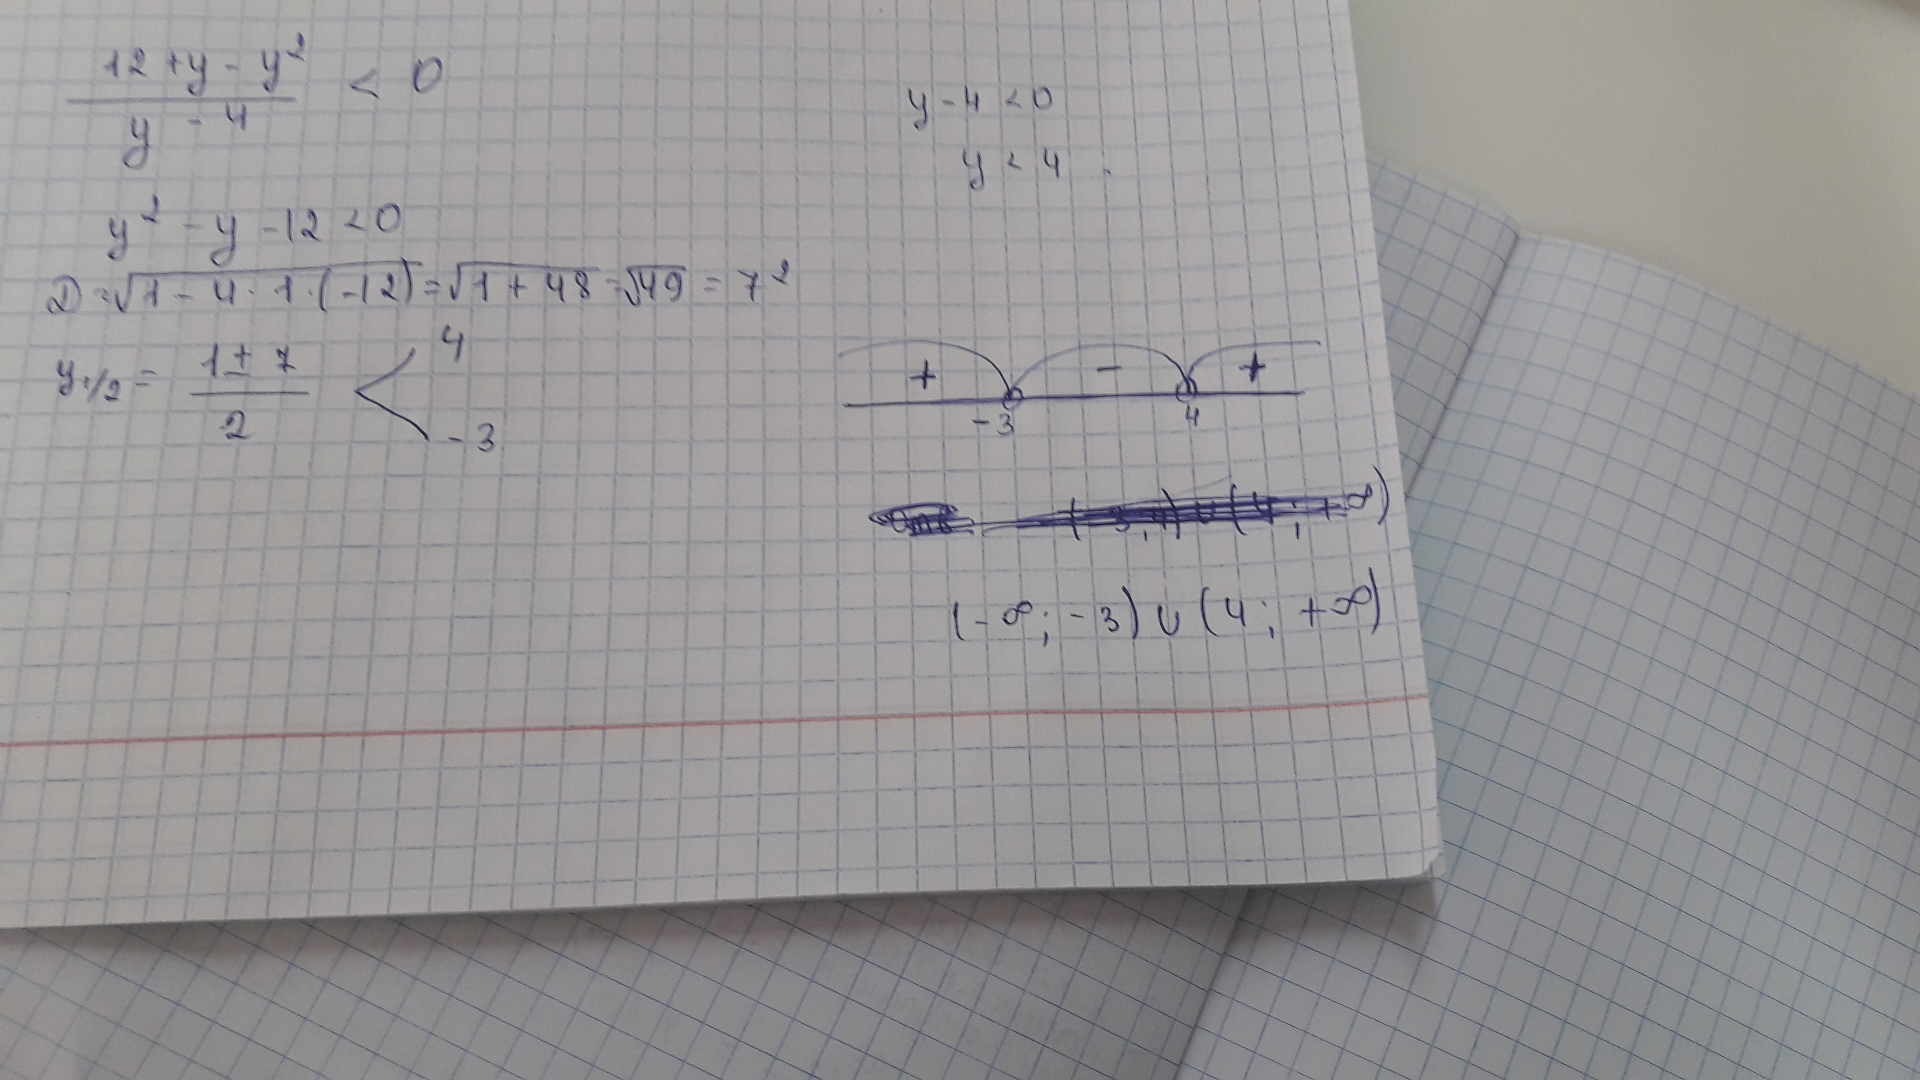 12 + y - y²
y - 4
< 0
y² - y - 12 < 0
D = √1 - 4 · 1 · (-12) = √1 + 48 = √49 = 7²
y₁/₂ = 1 ± 7
2
4
-3
y - 4 < 0
y < 4
+ - +
-3 4
(-∞; -3) ∪ (4; +∞)